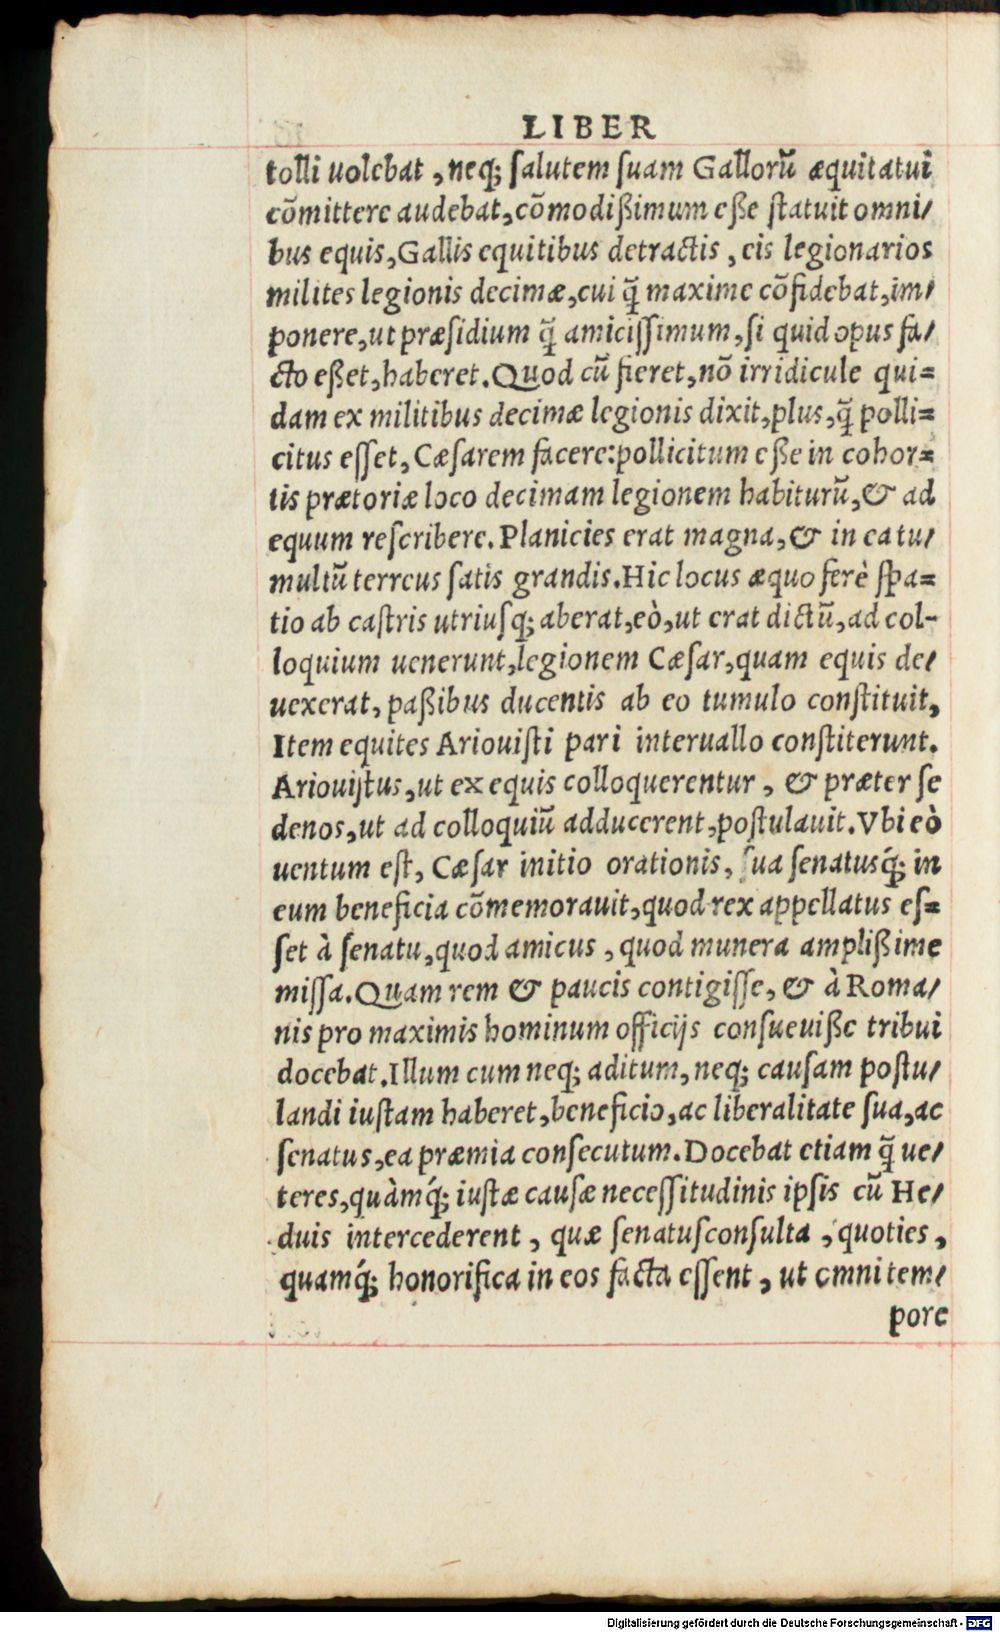 LIBER
tolli uolebat, neq; ſalutem ſuam Gallorũ æquitatui
cõmittere audebat, cõmodißimum eße ſtatuit omni/
bus equis, Gallis equitibus detractis, eis legionarios
milites legionis decimæ, cui q̃ maxime cõfidebat, im/
ponere, ut præſidium q̃ amiciſſimum, ſi quid opus fa/
cto eßet, haberet. Quod cũ fieret, nõ irridicule qui=
dam ex militibus decimæ legionis dixit, plus, q̃ polli=
citus eſſet, Cæſarem facere: pollicitum eße in cohor=
tis prætoriæ loco decimam legionem habiturũ, & ad
equum reſcribere. Planicies erat magna, & in ea tu/
multũ terreus ſatis grandis. Hic locus æquo ferè ſpa=
tio ab caſtris utriuſq; aberat, eò, ut erat dictũ, ad col-
loquium uenerunt, legionem Cæſar, quam equis de/
uexerat, paßibus ducentis ab eo tumulo conſtituit,
Item equites Ariouiſti pari interuallo conſtiterunt.
Ariouiſtus, ut ex equis colloquerentur, & præter ſe
denos, ut ad colloquiũ adducerent, poſtulauit. Vbi eò
uentum eſt, Cæſar initio orationis, ſua ſenatusq́; in
eum beneficia cõmemorauit, quod rex appellatus eſ=
ſet à ſenatu, quod amicus, quod munera amplißime
miſſa. Quam rem & paucis contigiſſe, & à Roma/
nis pro maximis hominum officijs conſueuiße tribui
docebat. Illum cum neq; aditum, neq; cauſam poſtu/
landi iuſtam haberet, beneficio, ac liberalitate ſua, ac
ſenatus, ea præmia conſecutum. Docebat etiam q̃ ue/
teres, quàmq́; iuſtæ cauſæ neceſſitudinis ipſis cũ He/
duis intercederent, quæ ſenatuſconſulta, quoties,
quamq́; honorifica in eos facta eſſent, ut omni tem/
pore
Digitalisierung gefördert durch die Deutsche Forschungsgemeinschaft - DFG